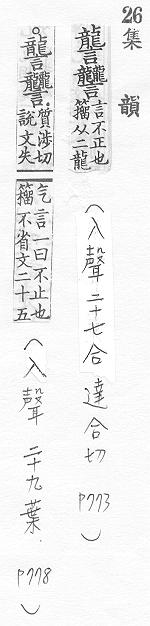 26
集韻
讋𧮩言不正也籀从二龍(入聲二十七合 達合切 P773)
。讋𧮩質涉切說文失气言一曰不止也籀不省文二十五(入聲 二十九葉. P778)